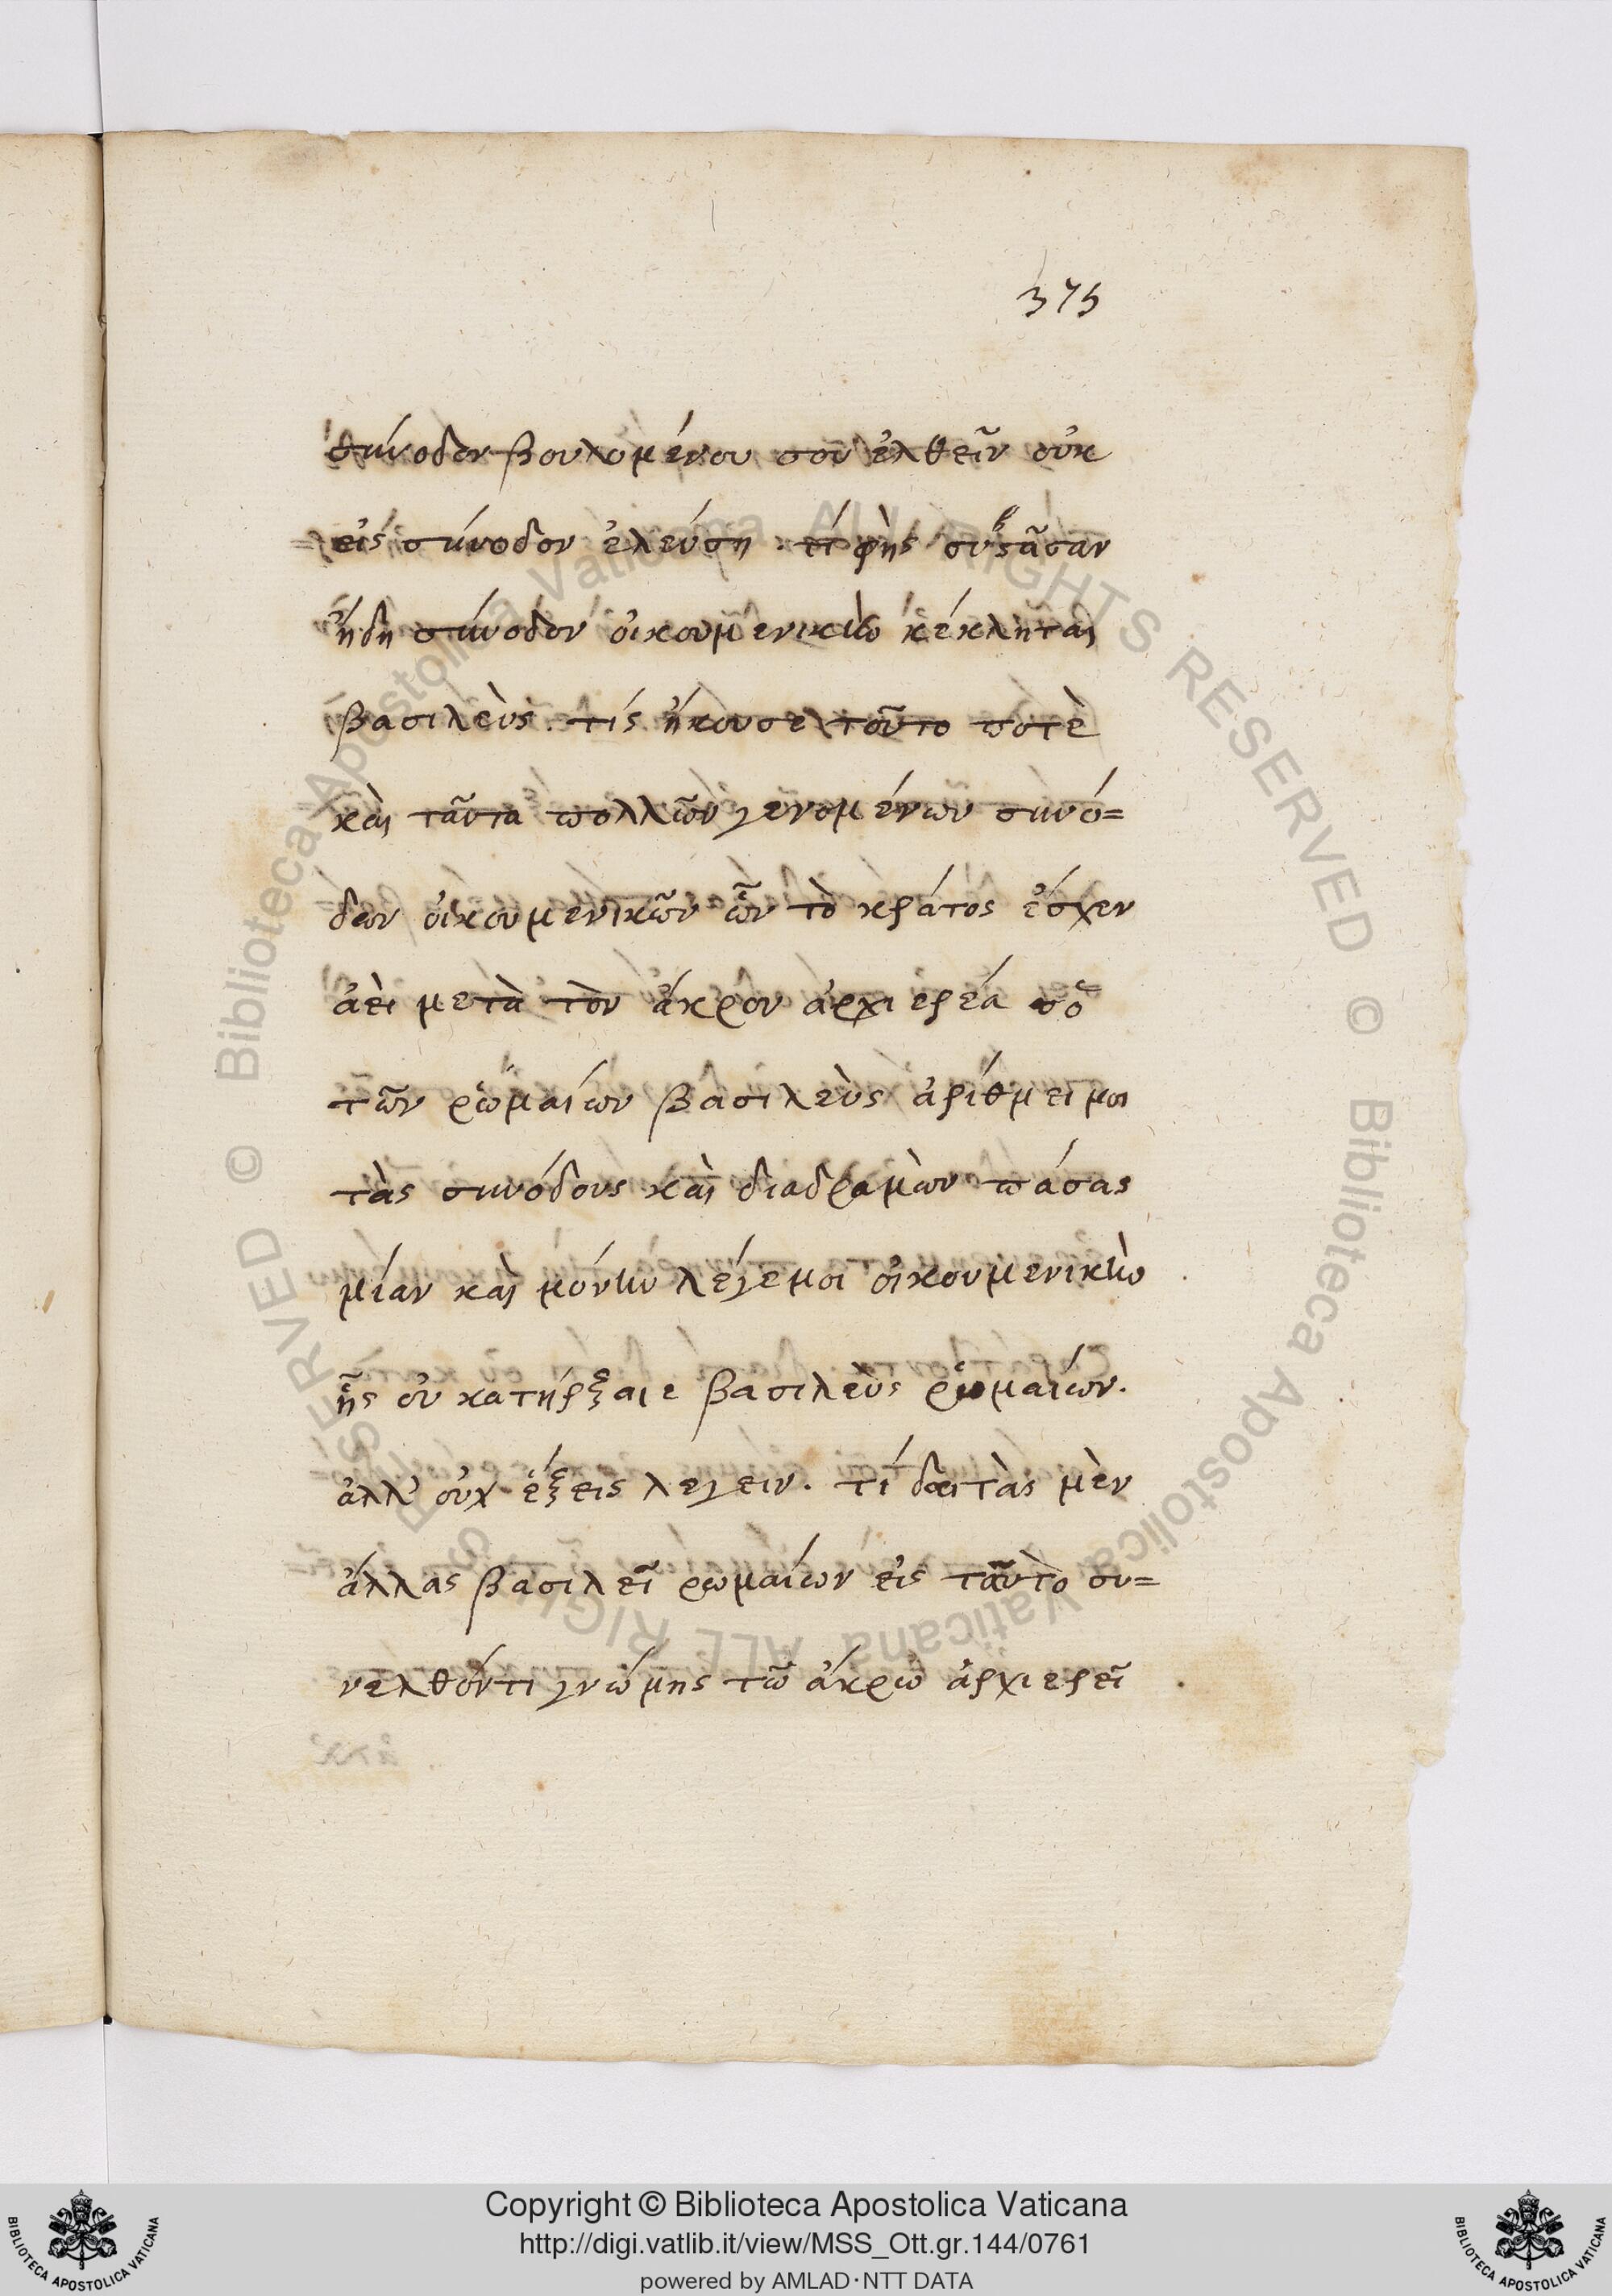 375
σύνοδον βουλομένου σου ἐλθεῖν οὐκ
εἰς σύνοδον ἐλεύση. τί φὴς συστᾶσαν
ἤδη σύνοδον οἰκουμενικὴν κέκληται
βασιλεὺς. τίς ἤκουσε τοῦτο ποτὲ
καὶ ταῦτα πολλῶν γενομένων συνό=
δων οἰκουμενικῶν ὧν τὸ κράτος ἔσχεν
ἀεὶ μετὰ τὸν ἄκρον ἀρχιερέα
τῶν ῥωμαίων βασιλεὺς ἀρίθμει μοι
τὰς συνόδους καὶ διαδραμὼν πάσας
μίαν καὶ μόνην λέγε μοι οἰκουμενικὴν
ἧς οὐ κατήρξατε βασιλεὺς ῥωμαίων.
ἀλλ' οὐχ ἕξεις λεγειν. τί δαὶ τὰς μὲν
ἄλλας βασιλεῖ ρωμαίων εἰς ταῦτὸ συ=
νελθόντι γνώμης τῶ ἄκρω ἀρχιερεῖ
Copyright © Biblioteca Apostolica Vaticana
http://digi.vatlib.it/view/MSS_Ott.gr.144/0761
powered by AMLAD·NTT DATA